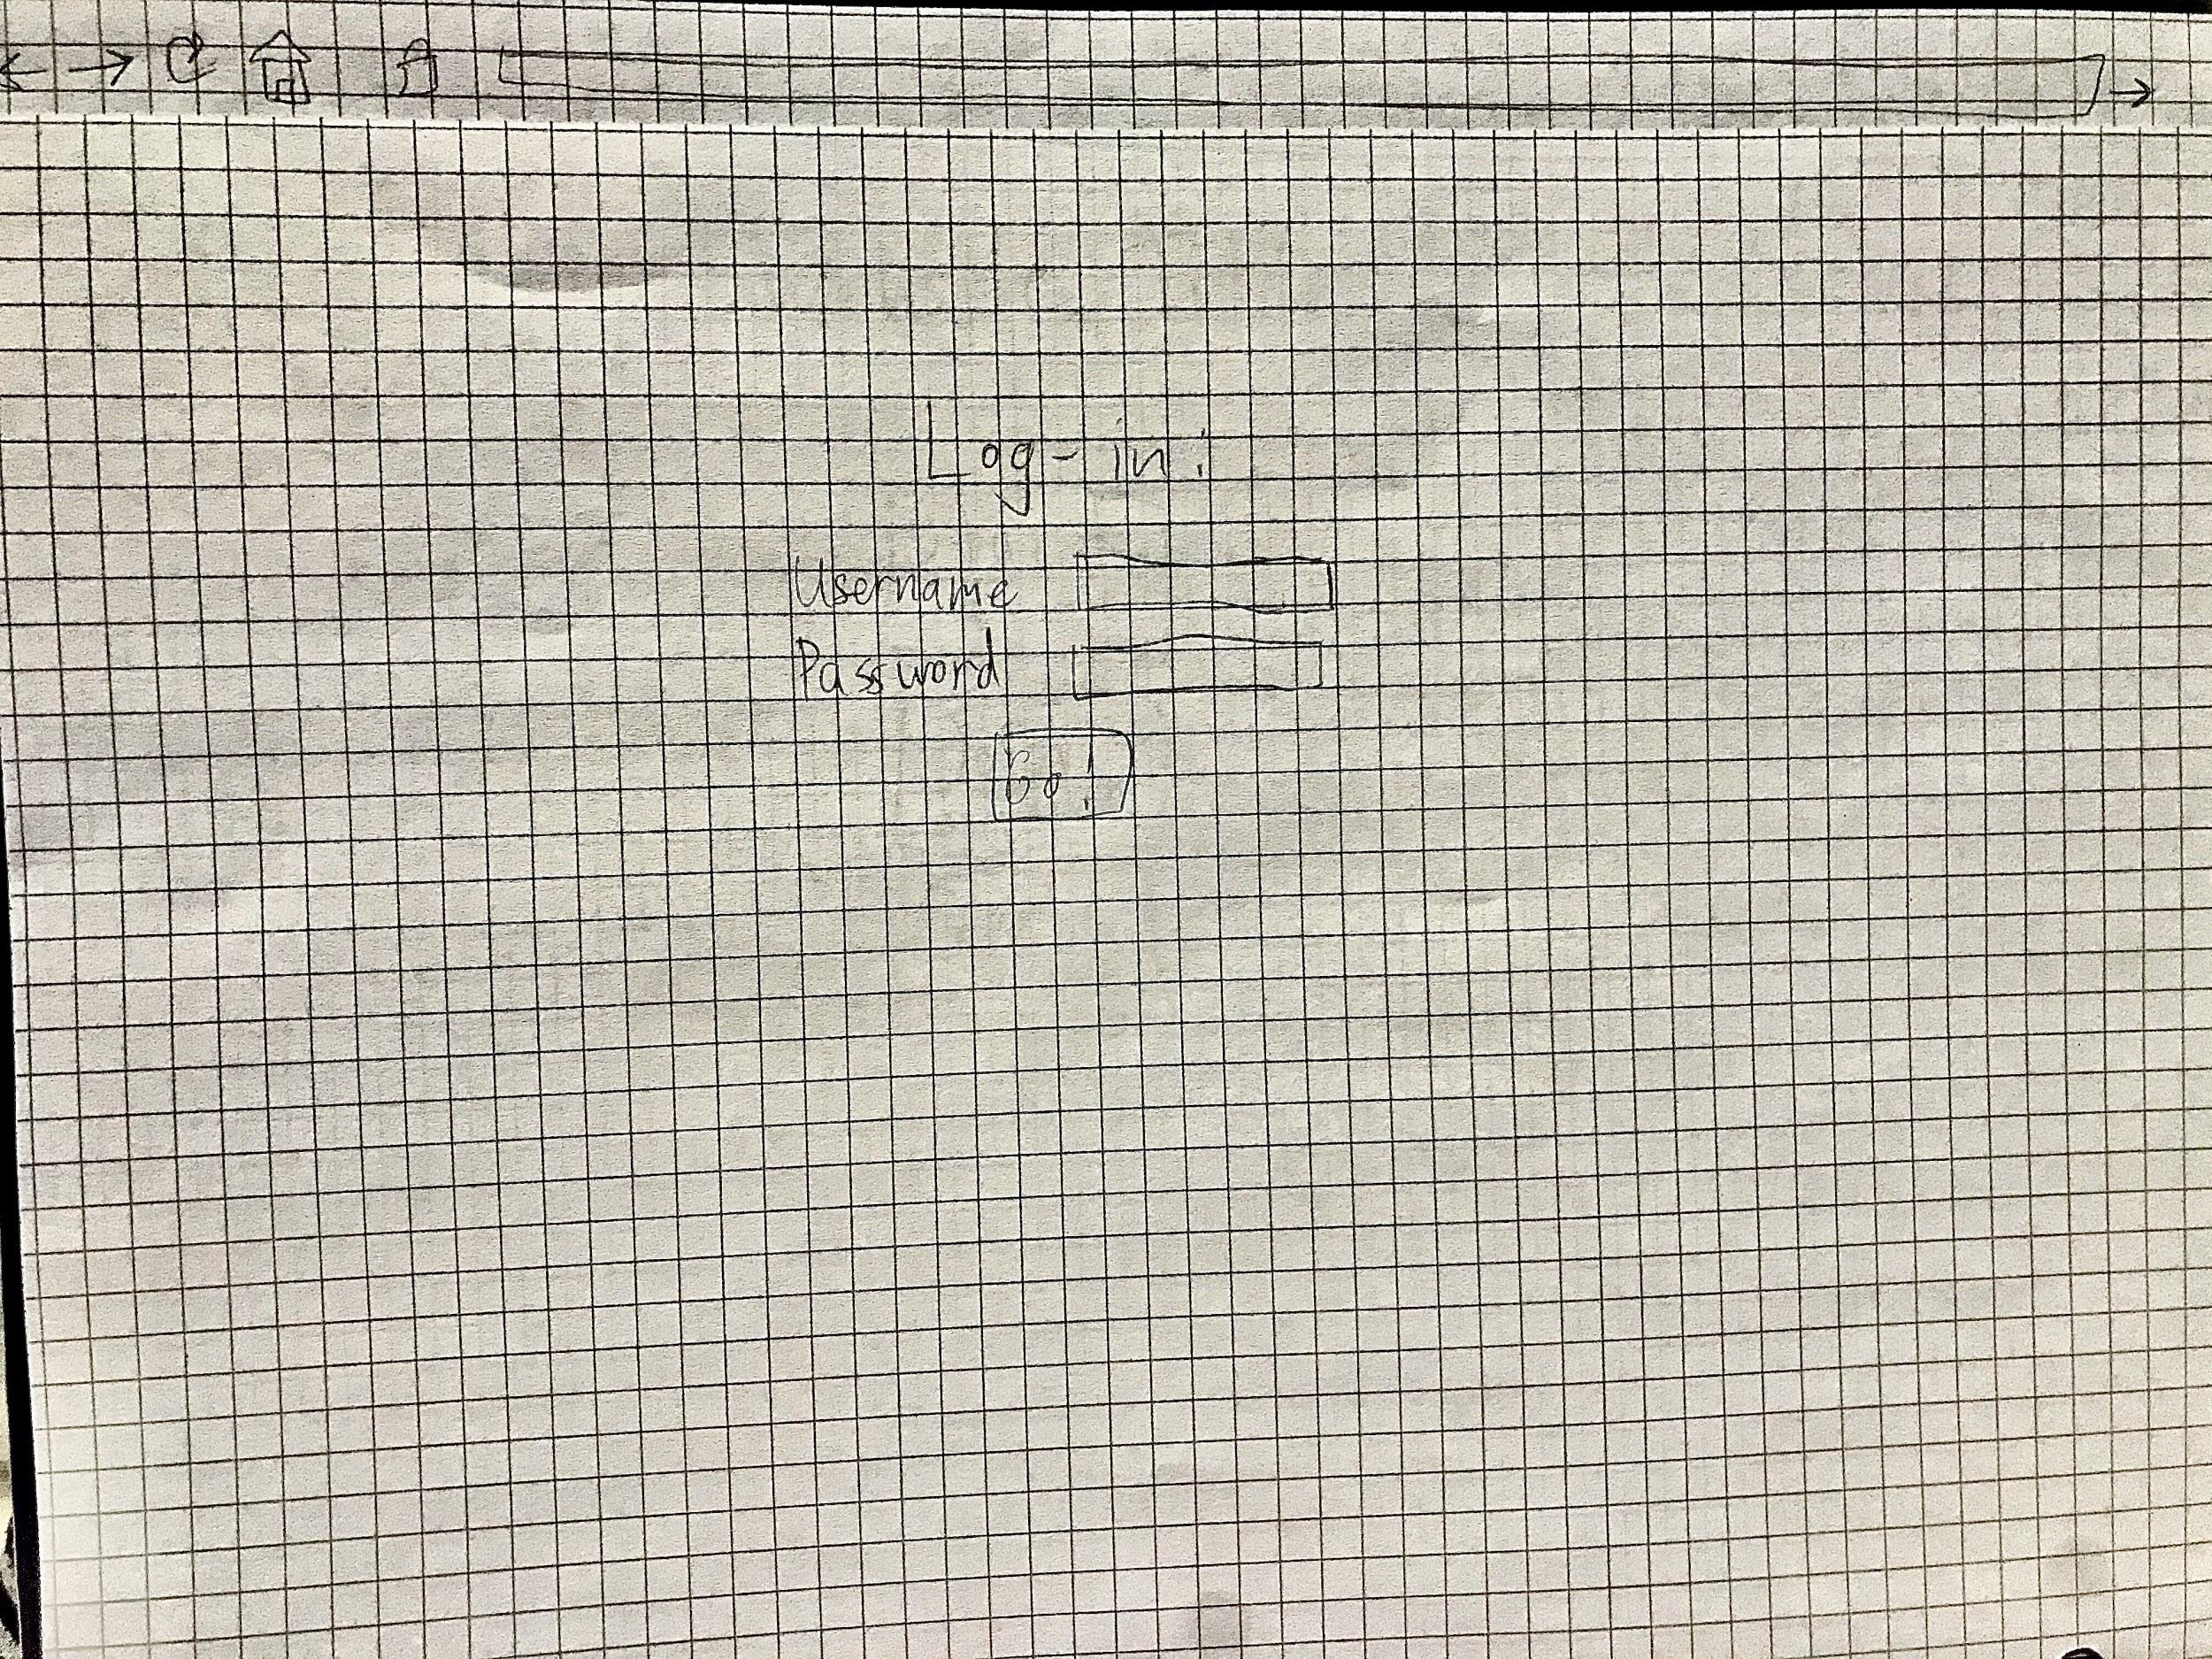 Log-in:
Username
Password
Go!